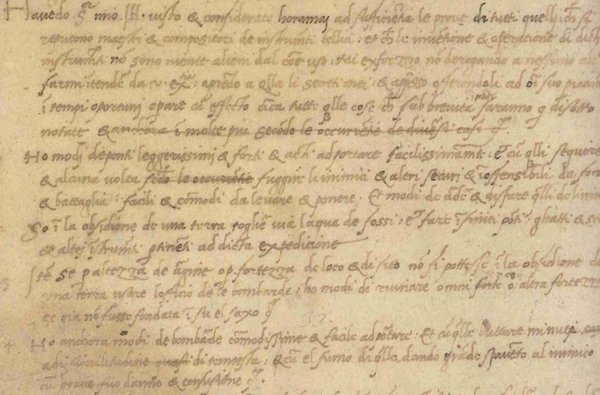 Havendo S.or mio Ill. visto & considerato horamai ad sufficientia le prove di tutti quelli che si
reputono maestri & compositori de instrumti bellici: et che le inventione & operatione di dicti
instrumti nō sono niente alieni dal coē uso: mi exforzero nō derogando a nessuno altro
farmi intender da v. ex.: aprendo a qlla li secreti mei: & appsso offerendoli ad oni suo piacimto
i tempi oportuni opare cū effecto circa tutte qlle cose che sub brevita i pte saranno q disotto
notate & anchora i molte piu secōdo le occurrētie de diversi casi &c.
Ho modi de ponti leggerissimi & forti & acti ad portare facilissimamte: et cū qlli seguire
& alcuna volta secōdo le occurrētie fuggire li inimici & altri securi & inoffensibili da foco
& battaglia: facili & cōmodi da levare & ponere. Et modi de arder & disfare qlli de linimico
So i la obsidione de una terra toglier via laqua de fossi: et fare ifiniti pōti ghatti & scale
et altri istrumti ptinēti ad dicta expeditione
Ité se p altezza de argine o p fortezza de loco & di sito nō si pottesse i la obsidione de
una terra usare lofficio de le bombarde: ho modi di ruinare omni forte o altra fortezza
se gia nō fusse fondata i su el saxo &c.
Ho anchora modi de bombarde cōmodissime & facile ad portare: Et cū qlle buttare minuti
ad similitudine quasi di tempesta: & cū el fumo di qlla dando grāde spavēto al inimico
cū grave suo danno & confusione &c.